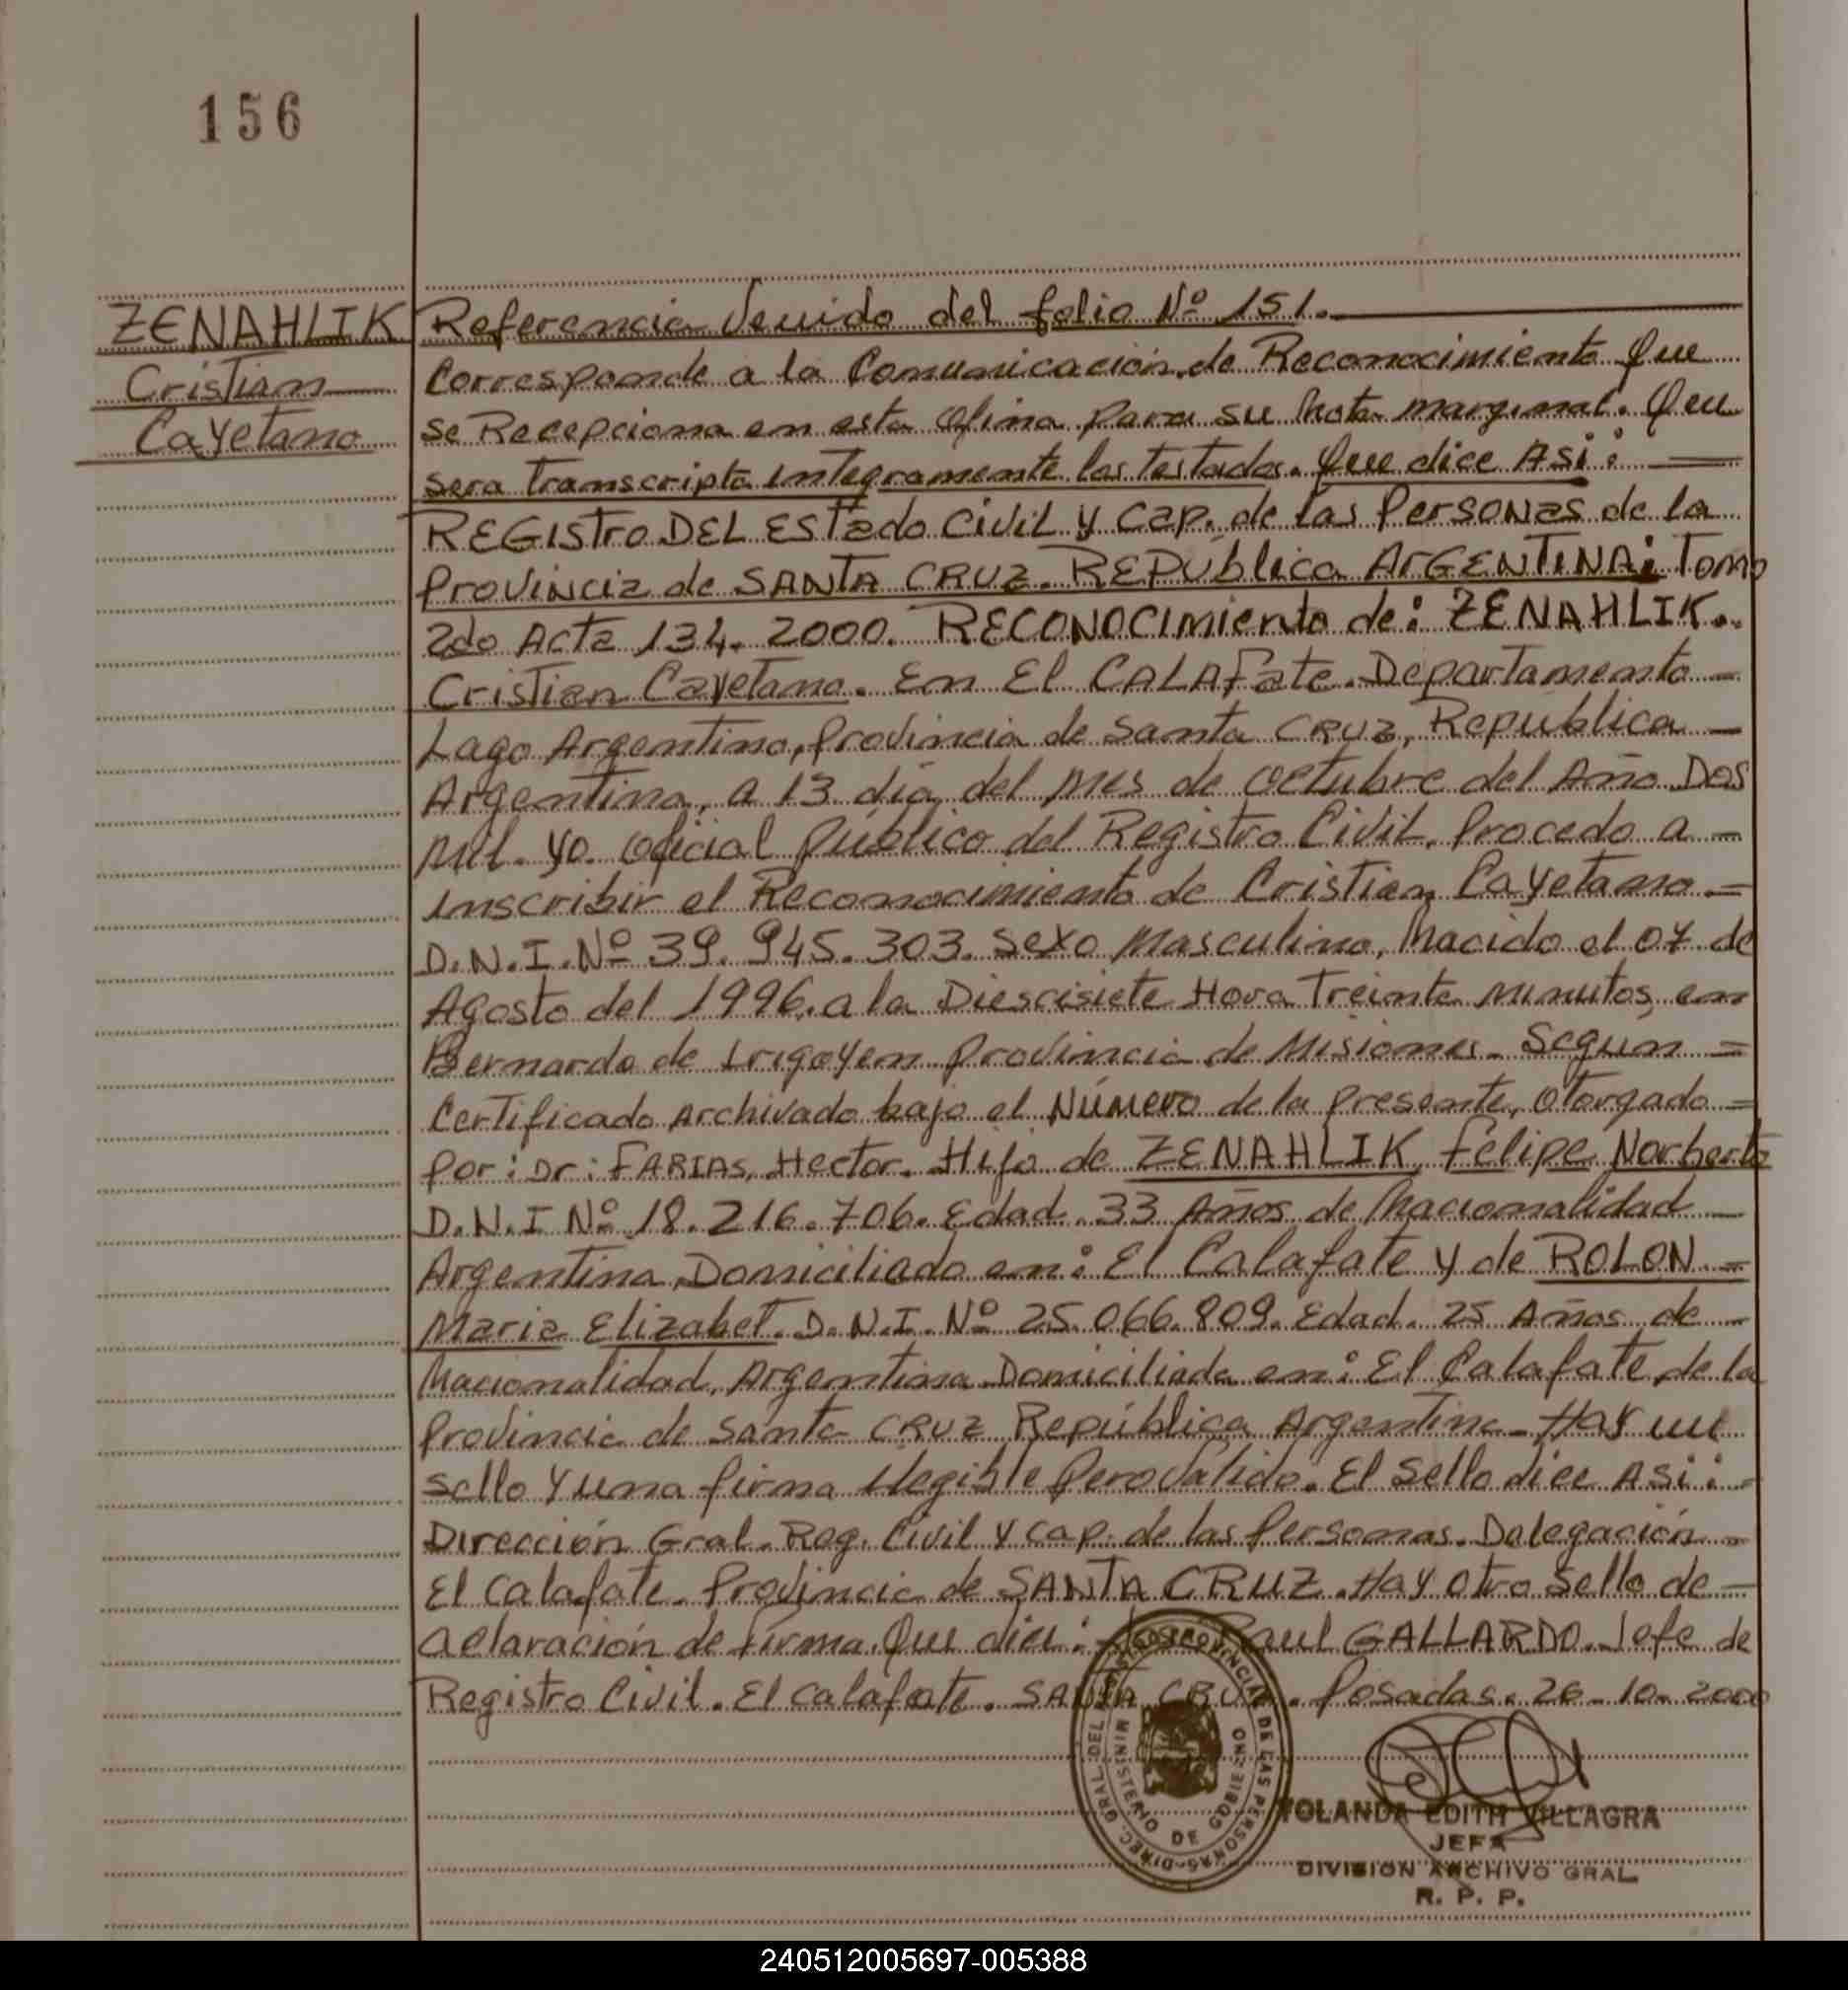 156
ZENAHLIK
Cristian
Cayetano
Referencia Venido del folio Nº 151.
Corresponde a la Comunicación de Reconocimiento Que
se Recepciona en esta ofina para su Nota marginal. Que
sera transcripta integramente los testados. Que dice Asi:
REGIStro DEL EStado CiViL y Cap. de las PersoNas de la
ProViNcia de SANTA CRUZ. REPública ArGENTINA: Tomo
2do Acta 134. 2000. RECONOCimiento de: ZENAHLIK.
Cristian Cayetano. En El CALAFate. Departamento
Lago Argentino, Provincia de Santa CRUZ, Republica
Argentina, a 13 dia del mes de octubre del Año Dos
mil. yo oficial Público del Registro Civil, Procedo a
inscribir el Reconocimiento de Cristian Cayetano
D.N.I. Nº 39.945.303. Sexo Masculino, Nacido el 07 de
Agosto del 1996. a la Diescisiete Hora Treinta Minutos, en
Bernardo de Irigoyen Provincia de Misiones. Según
Certificado Archivado bajo el Número de la presente, otorgado
por: Dr: FARIAS, Hector. Hijo de ZENAHLIK, Felipe Norberto
D.N.I Nº 18.216.706. Edad. 33 Años de Nacionalidad
Argentina, Domiciliado en: El Calafate y de ROLON
Maria Elizabet. D.N.I. Nº 25.066.809. Edad. 25 Años de
Nacionalidad, Argentina Domiciliada en: El Calafate, de la
Provincia de Santa CRUZ República Argentina. Hay un
sello y una firma ilegible pero válido. El Sello dice Asi:
Dirección Gral. Reg. Civil y Cap. de las Personas. Delegación
El Calafate. Provincia de SANTA CRUZ. Hay otro Sello de
aclaración de firma. Que dice: Raul GALLARDO. Jefe de
Registro Civil. El Calafate. SANTA CRUZ. Posadas. 26-10-2000
PROVINCIAL DE LAS PERSONAS-DIREC. GRAL. DEL
MINISTERIO DE GOBIERNO
YOLANDA EDITH VILLAGRA
JEFA
DIVISION ARCHIVO GRAL.
R. P. P.
240512005697-005388